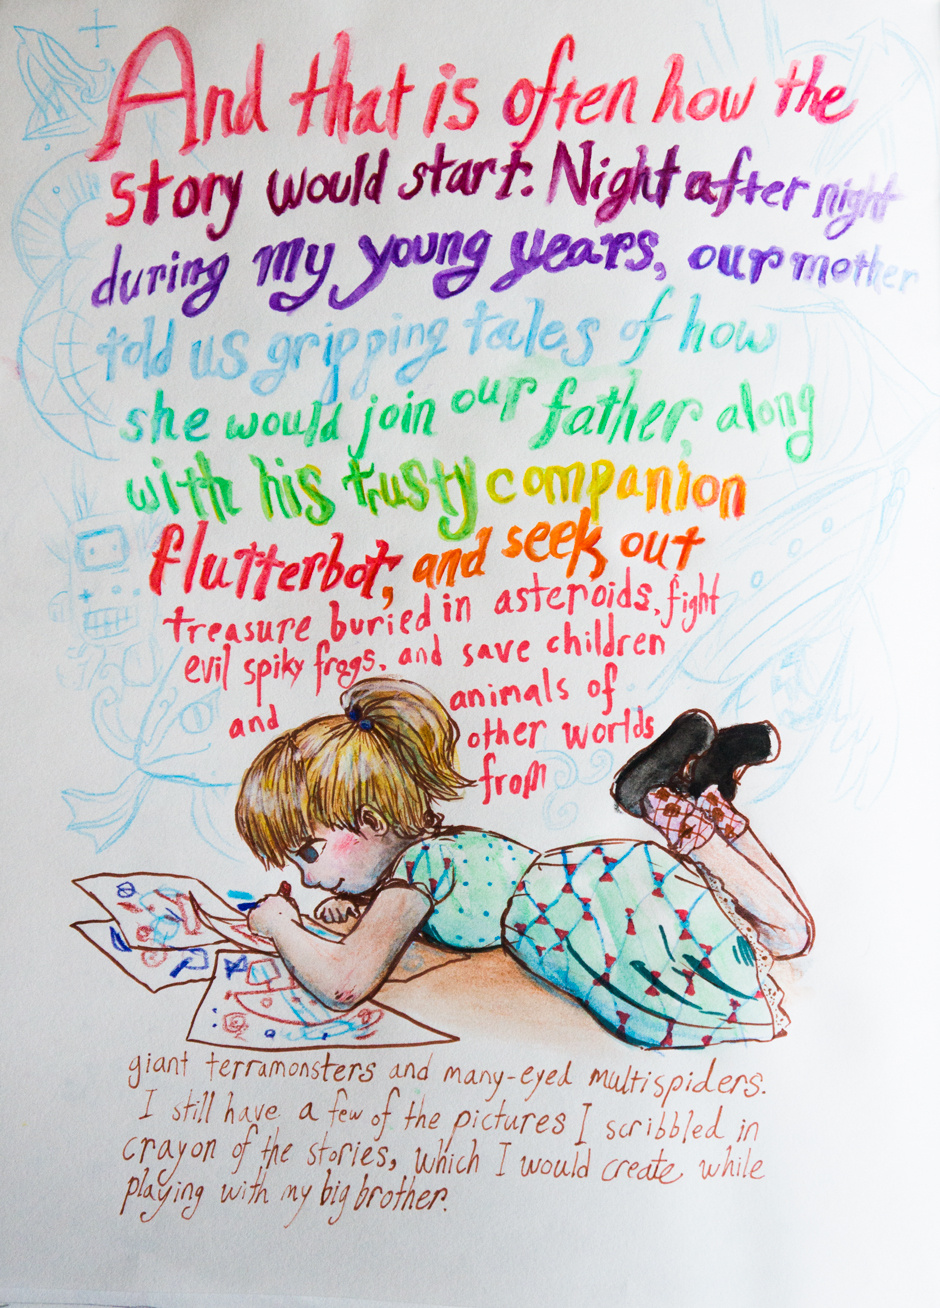 And that is often how the
story would start. Night after night
during my young years, our mother
told us gripping tales of how
she would join our father, along
with his trusty companion
flutterbot, and seek out
treasure buried in asteroids, fight
evil spiky frogs, and save children
and animals of
other worlds
from
giant terramonsters and many-eyed multispiders.
I still have a few of the pictures I scribbled in
crayon of the stories, which I would create while
playing with my big brother.